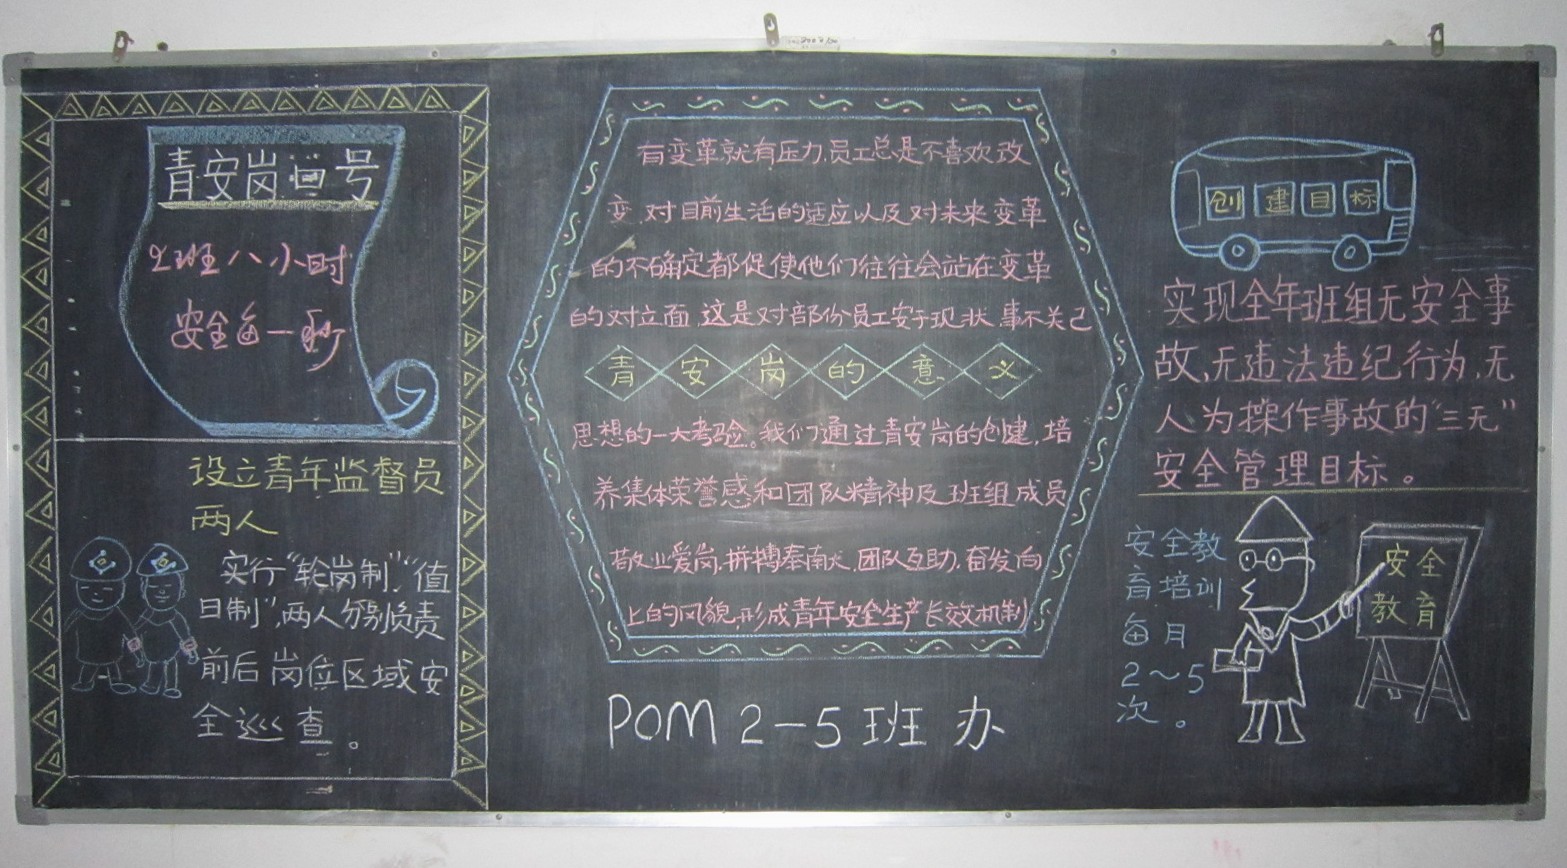 青安岗口号
上班八小时
安全每一秒
设立青年监督员
两人
实行"轮岗制""值
日制",两人分别负责
前后岗位区域安
全巡查。
有变革就有压力,员工总是不喜欢改
变,对目前生活的适应以及对未来变革
的不确定都促使他们往往会站在变革
的对立面,这是对部份员工安于现状,事不关己
青安岗的意义
思想的一大考验。我们通过青安岗的创建,培
养集体荣誉感和团队精神及班组成员
敬业爱岗,拼搏奉献,团队互助,奋发向
上的风貌,形成青年安全生产长效机制
POM 2-5班 办
创建目标
实现全年班组无安全事
故,无违法违纪行为,无
人为操作事故的"三无"
安全管理目标。
安全教
育培训
每月
2～5
次。
安全
教育